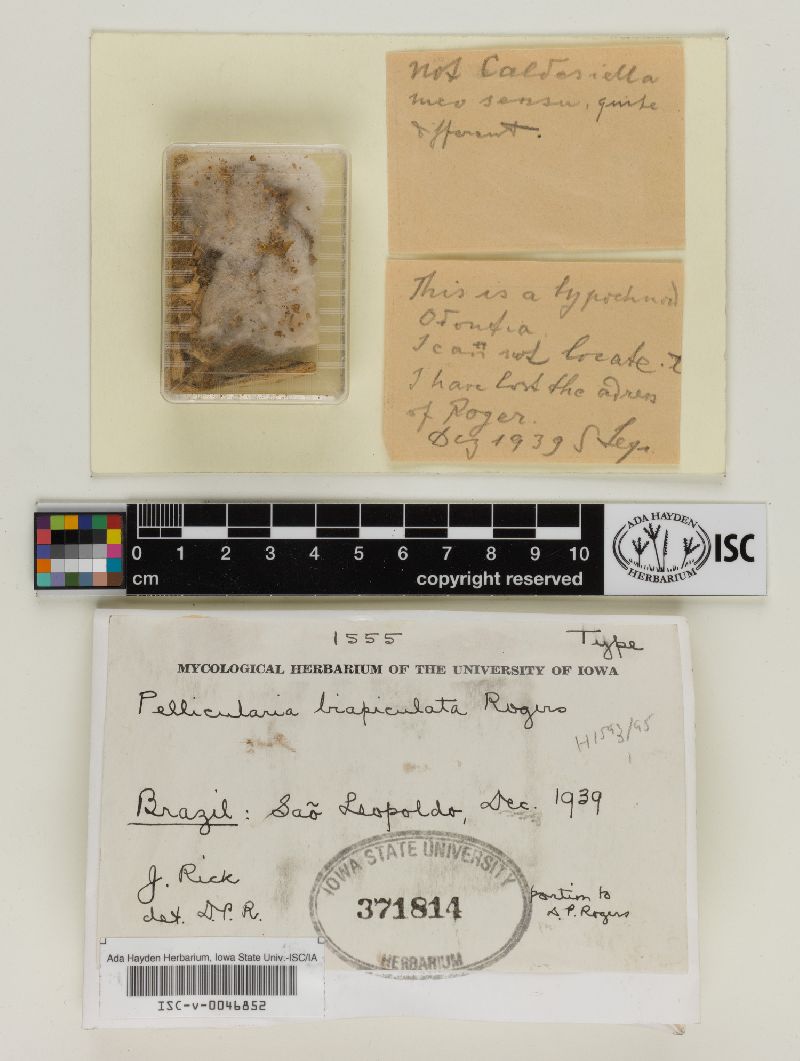 not Caldesiella
meo sensu, quite
different.
This is a hypochnoid
Odontia
I can not locate.
I have lost the adress
of Roger.
Dez 1939 S Leop.
0 1 2 3 4 5 6 7 8 9 10
cm
copyright reserved
ADA HAYDEN
HERBARIUM
ISC
1555
Type
MYCOLOGICAL HERBARIUM OF THE UNIVERSITY OF IOWA
Pellicularia biapiculata Rogers
H1593/95
Brazil: Saõ Leopoldo, Dec. 1939
J. Rick
det. D.P.R.
portion to
D.P. Rogers
IOWA STATE UNIVERSITY
371814
HERBARIUM
Ada Hayden Herbarium, Iowa State Univ.-ISC/IA
ISC-v-0046852